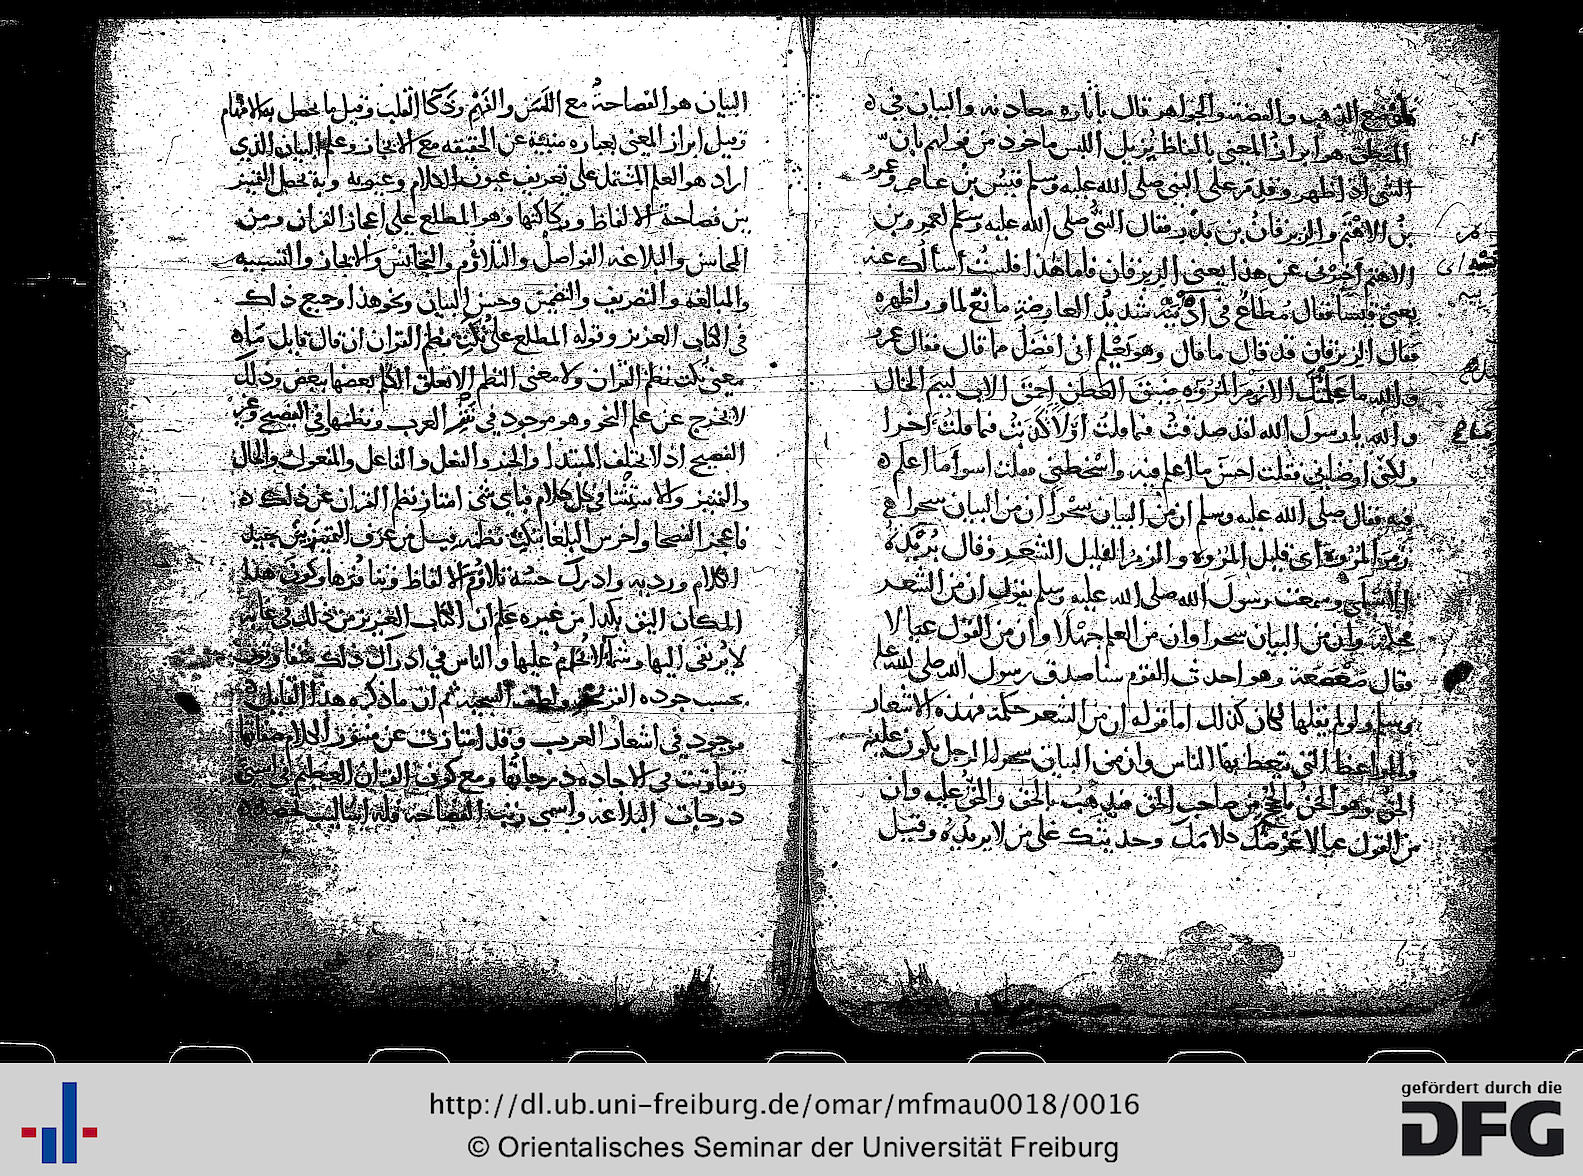 موضع الذهب والفضة والجواهر قال باثاره معادنه والبيان في
المنطق هو ابراز المعنى بالفاظ يزيل اللبس ماخوذ من قولهم بان
الشي اذا ظهر وقدم على النبي صلى الله عليه وسلم قيس بن عاصم وعمرو
بن الاهتم والزبرقان بن بدر فقال النبي صلى الله عليه وسلم لعمرو بن
الاهتم اخبرني عن هذا يعني الزبرقان فاما هذا فلست أسألك عنه
يعني قيسا فقال مطاع في أدنيه شديد العارضة مانع لما ورا ظهره
فقال الزبرقان قد قال ما قال وهو يعلم اني افضل مما قال فقال عمرو
والله ما علمتك الا زمر المروه ضيق العطن احمق الاب ليم الخال
والله يا رسول الله لقد صدقت فيما قلت اولا وما كذبت فيما قلت اخرا
ولكني ارضاني فقلت احسن ما اعلم فيه واسخطني فقلت اسوأ ما اعلم
فيه فقال صلى الله عليه وسلم ان من البيان سحرا ان من البيان سحرا
زمر المروة أي قليل المروة والزمر القليل الشعر وقال بريدة
الاسلمي وسمعت رسول الله صلى الله عليه وسلم يقول ان من الشعر
حكما وان من البيان سحرا وان من العلم جهلا وان من القول عيالا
فقال صعصعة وهو احدث القوم سنا صدق رسول الله صلى الله عليه
وسلم ولو لم يقلها كان كذلك اما قوله ان من الشعر حكمة فهذه الاشعار
والمواعظ التي يتعظ بها الناس وان من البيان سحرا الرجل يكون عليه
الحق وهو الحن بالحجج من صاحب الحق فيذهب بالحق والحق عليه وان
من القول عيالا عرضك كلامك وحديثك على من لا يريده وقيل
البيان هو الفصاحة مع اللسن والفهم وذكا القلب وقيل ما يحصل به الافهام
وقيل ابراز المعنى بعباره مبينة عن الحقيقه مع الايجاز وعلم البيان الذي
اراد هو العلم المشتمل على تعريف عيون الكلام وعيوبه وبه تحصل التمييز
بين فصاحة الالفاظ وركاكتها وهو المطلع على اعجاز القران ومن
المحاسن والبلاغه الفواصل والتلاؤم والتجانس والايجاز والتشبيه
والمبالغه والتصريف والتضمين وحسن البيان ونحو هذا وجميع ذلك
في الكتاب العزيز وقوله المطلع على نكت نظم القران ان قال قايل ما
معنى نكت نظم القران ولا معنى النظم الا تعلق الكلم بعضها ببعض وذلك
لا يخرج عن علم النحو وهو موجود في نثر العرب ونظمها في الفصيح وغير
الفصيح اذ لا يختلف المبتدا والخبر والفعل والفاعل والمفعول والحال
والتمييز والاستثنا في كل كلام فباي شي امتاز نظم القران عن ذلك
فاعجز الفصحا واخرس البلغا نكت نظمه قيل من عرف التمييز بين جيد
الكلام ورديه وادرك حسنه تلاؤم الالفاظ وتنافرها وكون هذا
المكان اليق بكذا من غيره علم ان الكتاب العزيز من ذلك في غايه
لا يرتقى اليها عليها والناس في ادراك ذلك متفاوتون
بحسب جوده ثم ان ما ذكره هذا القايل
موجود في اشعار العرب وقد امتازت عن منثور الكلام
وتفاوتت في الاجاده درجاتها ومع كون القران العظيم في اسنى
درجات البلاغه واسمى رتب الفصاحة فله اساليب
http://dl.ub.uni-freiburg.de/omar/mfmau0018/0016
© Orientalisches Seminar der Universität Freiburg
gefördert durch die
DFG